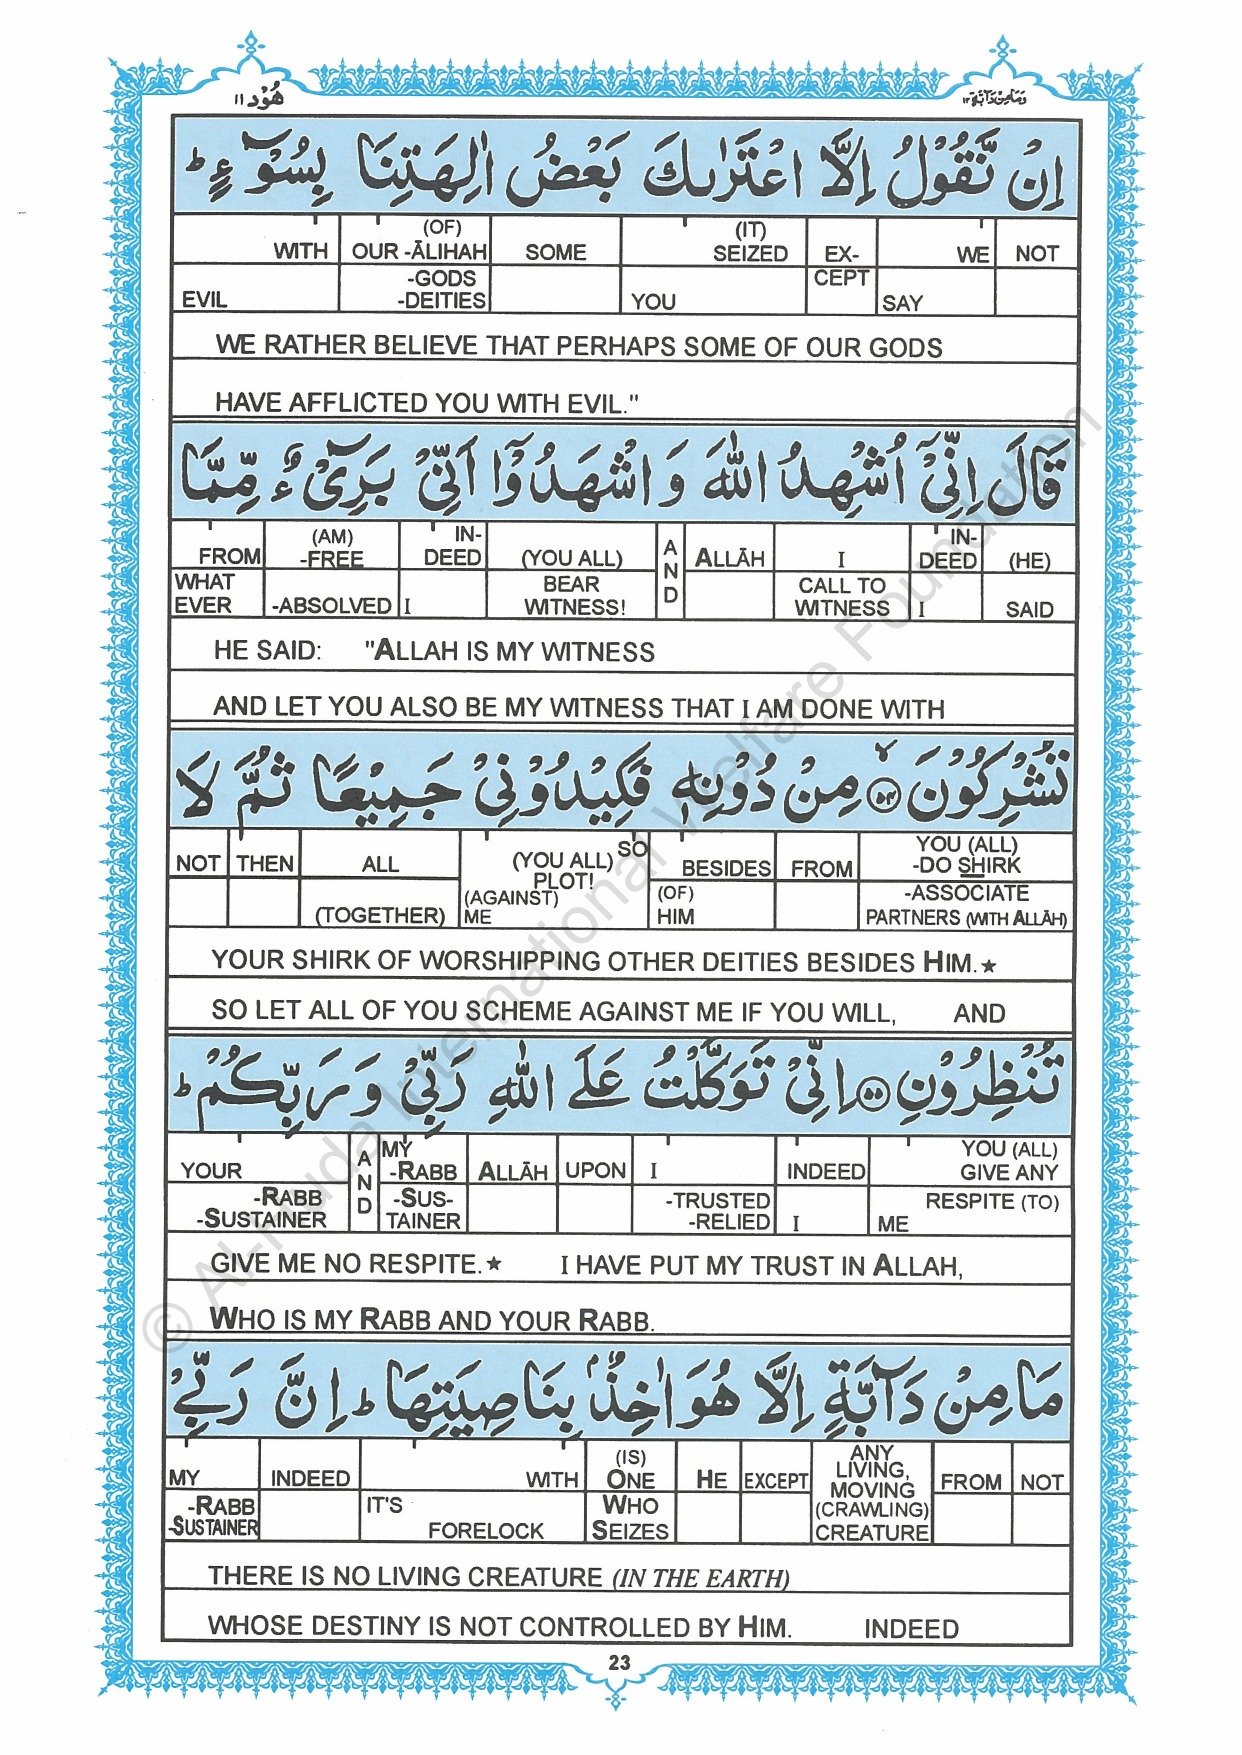 هُوْد ١١
وَمَا مِنْ دَآبَّة ١٢
اِنْ نَّقُوْلُ اِلَّا اعْتَرٰىكَ بَعْضُ اٰلِهَتِنَا بِسُوْٓءٍ ؕ
WITH | (OF) OUR -ĀLIHAH | SOME | (IT) SEIZED | EX- | WE | NOT
EVIL | -GODS -DEITIES | YOU | CEPT | SAY
WE RATHER BELIEVE THAT PERHAPS SOME OF OUR GODS
HAVE AFFLICTED YOU WITH EVIL."
قَالَ اِنِّيْٓ اُشْهِدُ اللّٰهَ وَ اشْهَدُوْٓا اَنِّيْ بَرِيْٓءٌ مِّمَّا
FROM | (AM) -FREE | IN- DEED | (YOU ALL) | AND | ALLĀH | I | IN- DEED | (HE)
WHAT EVER | -ABSOLVED | I | BEAR WITNESS! | CALL TO WITNESS | I | SAID
HE SAID: "ALLAH IS MY WITNESS
AND LET YOU ALSO BE MY WITNESS THAT I AM DONE WITH
تُشْرِكُوْنَ ۙ﴿٥٤﴾ مِنْ دُوْنِهٖ فَكِيْدُوْنِيْ جَمِيْعًا ثُمَّ لَا
NOT | THEN | ALL | SO (YOU ALL) PLOT! | BESIDES | FROM | YOU (ALL) -DO SHIRK
(TOGETHER) | (AGAINST) ME | (OF) HIM | -ASSOCIATE PARTNERS (WITH ALLĀH)
YOUR SHIRK OF WORSHIPPING OTHER DEITIES BESIDES HIM.★
SO LET ALL OF YOU SCHEME AGAINST ME IF YOU WILL, AND
تُنْظِرُوْنِ ﴿٥٥﴾ اِنِّيْ تَوَكَّلْتُ عَلَى اللّٰهِ رَبِّيْ وَ رَبِّكُمْ ؕ
YOUR | AND | MY -RABB | ALLĀH | UPON | I | INDEED | YOU (ALL) GIVE ANY
-RABB -SUSTAINER | -SUS- TAINER | -TRUSTED -RELIED | I | RESPITE (TO) ME
GIVE ME NO RESPITE.★ I HAVE PUT MY TRUST IN ALLAH,
WHO IS MY RABB AND YOUR RABB.
مَا مِنْ دَآبَّةٍ اِلَّا هُوَ اٰخِذٌۢ بِنَاصِيَتِهَا ؕ اِنَّ رَبِّيْ
MY | INDEED | WITH | (IS) ONE | HE | EXCEPT | ANY LIVING, MOVING (CRAWLING) CREATURE | FROM | NOT
-RABB -SUSTAINER | IT'S FORELOCK | WHO SEIZES
THERE IS NO LIVING CREATURE (IN THE EARTH)
WHOSE DESTINY IS NOT CONTROLLED BY HIM. INDEED
23
© Al-Huda International Welfare Foundation